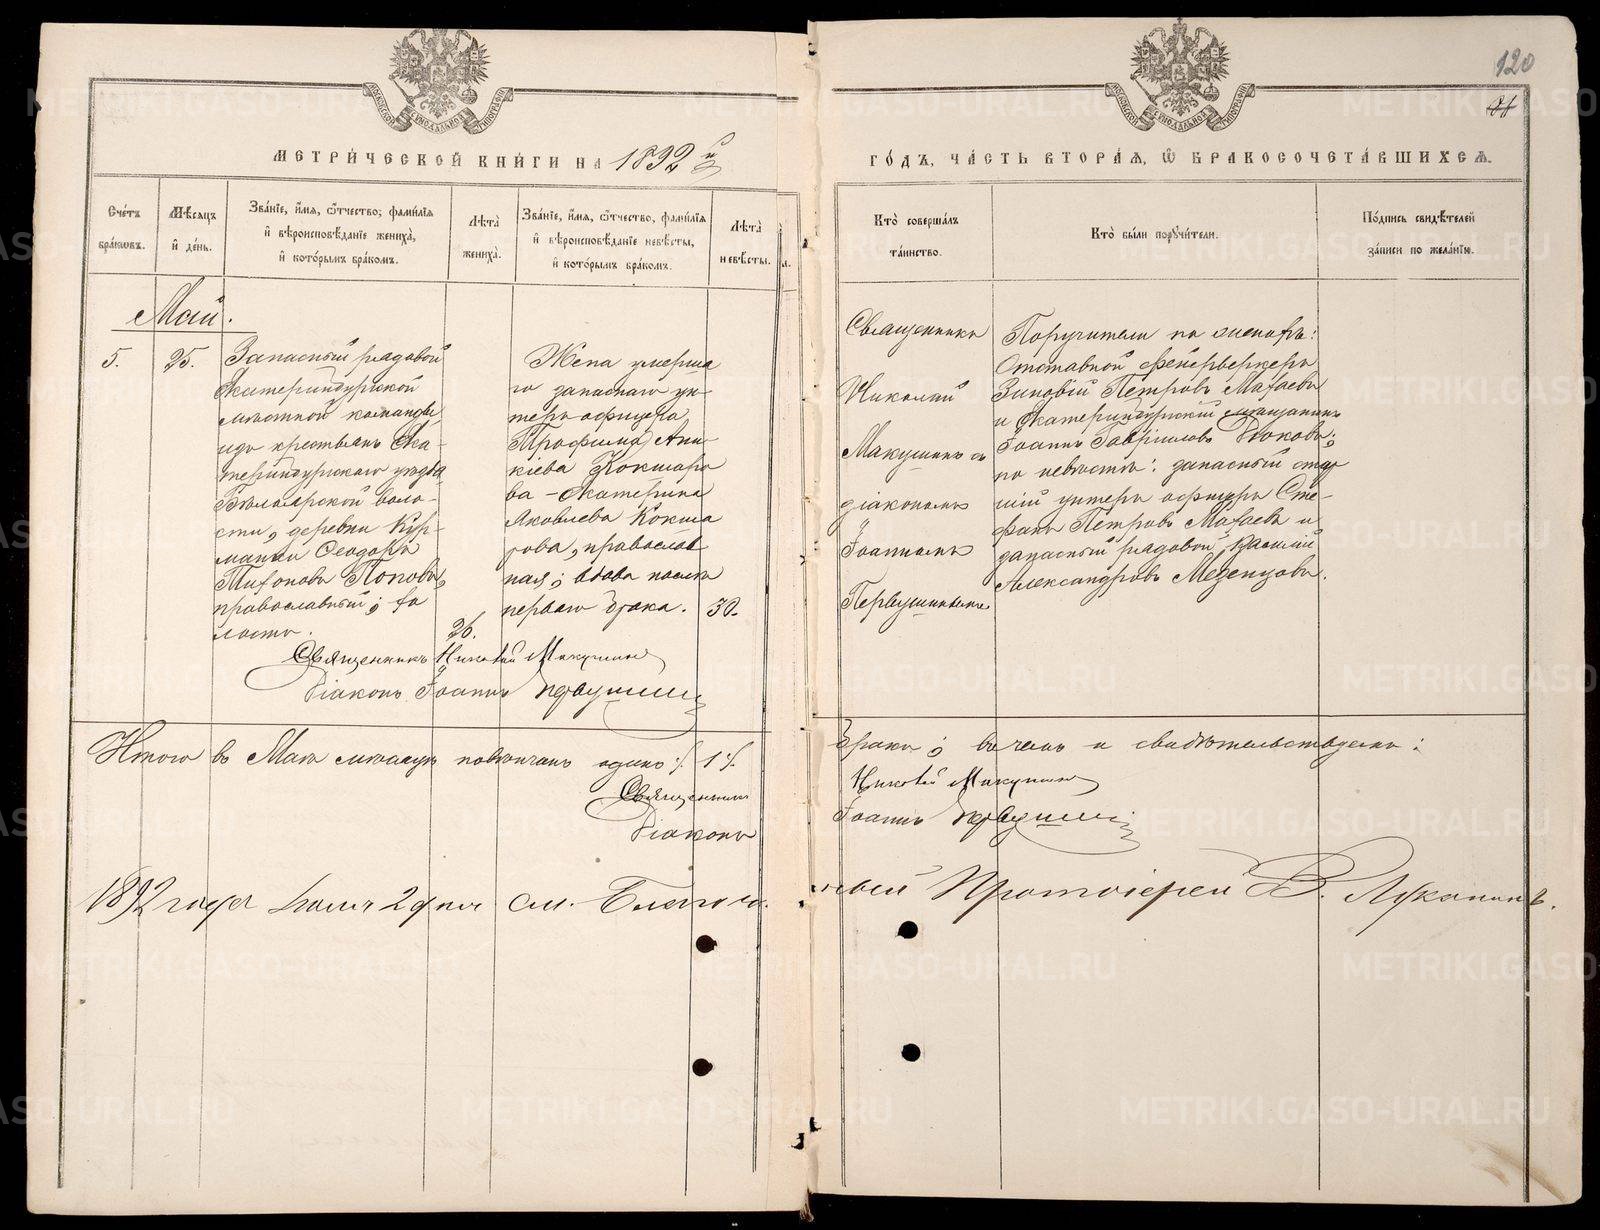 120
МЕТРИ́ЧЕСКОЙ КНИ́ГИ НА 1892 й
ГО́ДЪ, ЧА́СТЬ ВТОРА́Я, Ѽ БРАКОСОЧЕТА́ВШИХСЯ.
Сче́тъ бра́ковъ.
Мѣ́сяцъ и҆ де́нь.
Зва́нїе, и҆́мя, ѻ҆́тчество, фами́лїя и҆ вѣроисповѣ́данїе жениха̀, и҆ кото́рымъ бра́комъ.
Лѣ́та жениха̀.
Зва́нїе, и҆́мя, ѻ҆́тчество, фами́лїя и҆ вѣроисповѣ́данїе невѣ́сты, и҆ кото́рымъ бра́комъ.
Лѣ́та невѣ́сты.
Кто̀ соверша́лъ та́инство.
Кто̀ бы́ли поручи́тели.
По́дпись свидѣ́телей за́писи по жела́нїю.
Май.
5.
25.
Запасный рядовой
Екатеринбургской
мѣстной команды
изъ крестьянъ Ека-
теринбургскаго уѣзда
Бѣлоярской воло-
сти, деревни Кур-
манки Ѳеодоръ
Тихоновъ Поповъ,
православный; хо
лостъ.
26.
Жена умерша
го запаснаго ун-
теръ офицера
Трофима Ани-
кіева Кокшаро
ва - Екатерина
Яковлева Кокша
рова, православ
ная; вдова послѣ
перваго брака.
30.
Священникъ
Николай
Макушинъ съ
діакономъ
Іоанномъ
Первушинымъ
Поручители по женихѣ:
Отставной фейерверкеръ
Зиновій Петровъ Махаевъ
и Екатеринбургскій мѣщанинъ
Іоаннъ Гавріиловъ
по невѣстѣ: запасный стар
шій унтеръ офицеръ Сте-
фанъ Петровъ Махаевъ и
запасный рядовой Василій
Александровъ Мезенцовъ.
Священникъ Николай Макушинъ
Діаконъ Іоаннъ Первушинъ
Итого въ Маѣ мѣсяцѣ повѣнчанъ одинъ ./. 1 ./. бракъ; въ чемъ и свидѣтельствуемъ:
Священникъ Николай Макушинъ
Діаконъ Іоаннъ Первушинъ
1892 года Іюля 2 дня см. Благочинный Протоіерей В. Луканинъ.
METRIKI.GASO-URAL.RU